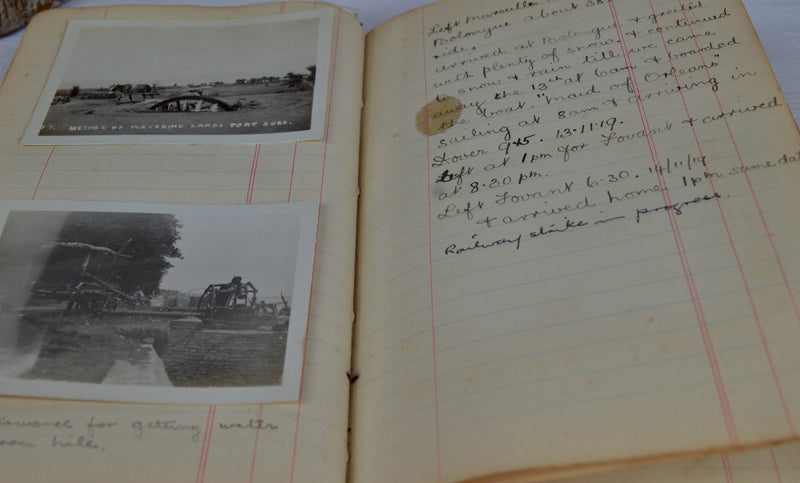 7. METHOD OF WATERING LAND. PORT SUEZ.
for getting water
from hill.
Left Marseilles
Bolongue about 38
ride.
arrived at Bolongue & greeted
with plenty of snow & continued
to snow & rain till we came
away the 13th at 6am & boarded
the boat "Maid of Orleans"
sailing at 8am & arriving in
Dover 9.45. 13.11.19.
Left at 1pm for Fovant & arrived
at 8.30 pm.
Left Fovant 6.30. 14/11/19
& arrived home 1pm same dat
Railway strike in progress.